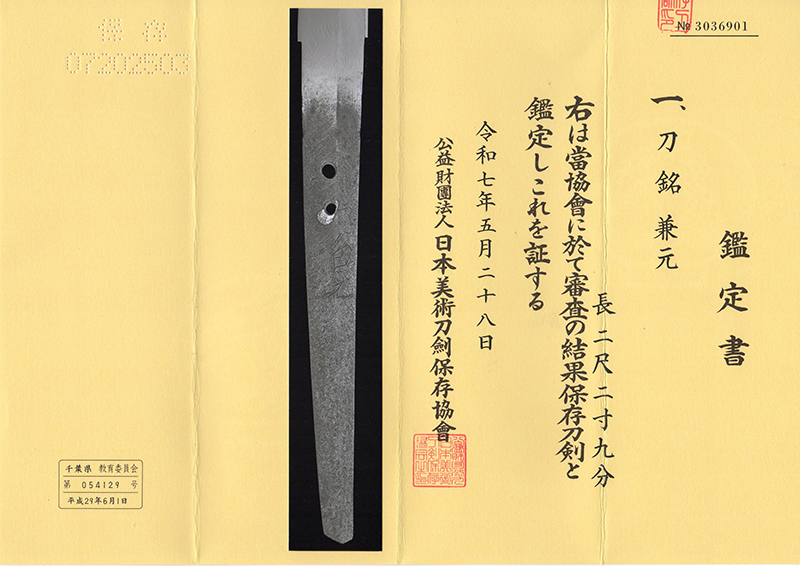 № 3036901
鑑定書
一、刀 銘 兼元
長二尺二寸九分
右は當協會に於て審査の結果保存刀劍と
鑑定しこれを証する
令和七年五月二十八日
公益財團法人 日本美術刀劍保存協會
保存
07202503
千葉県 教育委員会
第 054129 号
平成29年6月1日